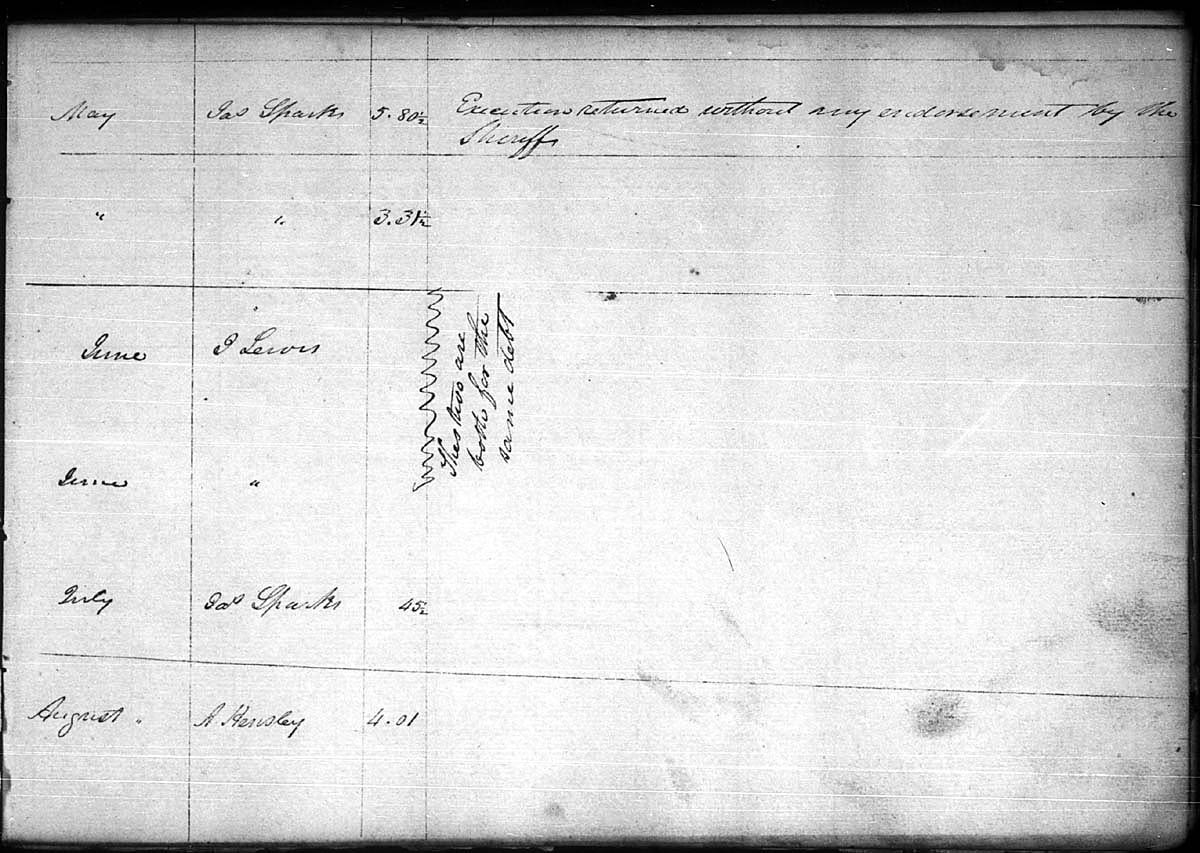 May Jas Sparks 5.80½ Execution returned without any endorsement by the
Sheriff
" " 3.31½
June J Lewis
These two are
both for the
same debt
June "
July Jas Sparks 45½
August " A Hensley 4.01